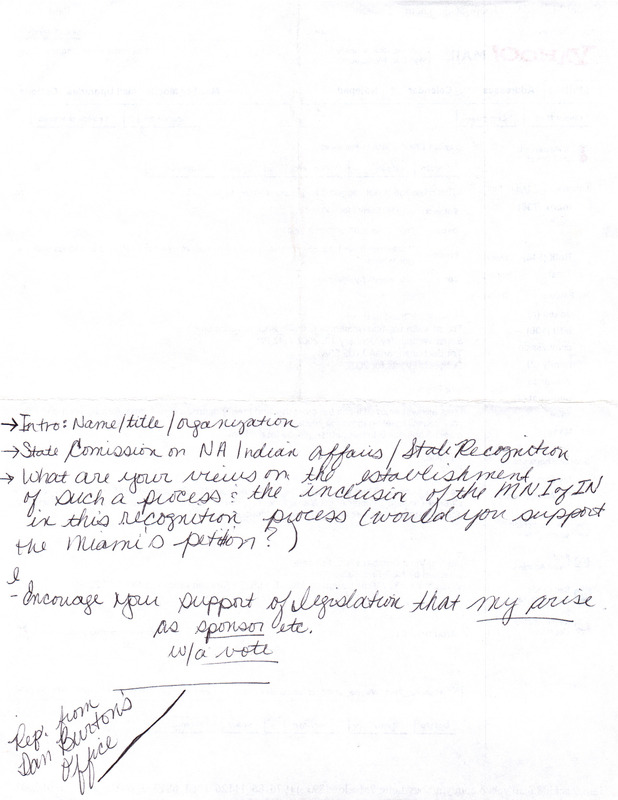 → Intro: Name/title/organization
→ State Comission on NA Indian affairs / State Recognition
→ What are your views on the establishment
of such a process & the inclusion of the MNI of IN
in this recognition process (would you support
the Miami's petition?)
- Encourage your support of legislation that my arise
as sponsor etc.
w/a vote
Rep. from
Dan Burton's
Office